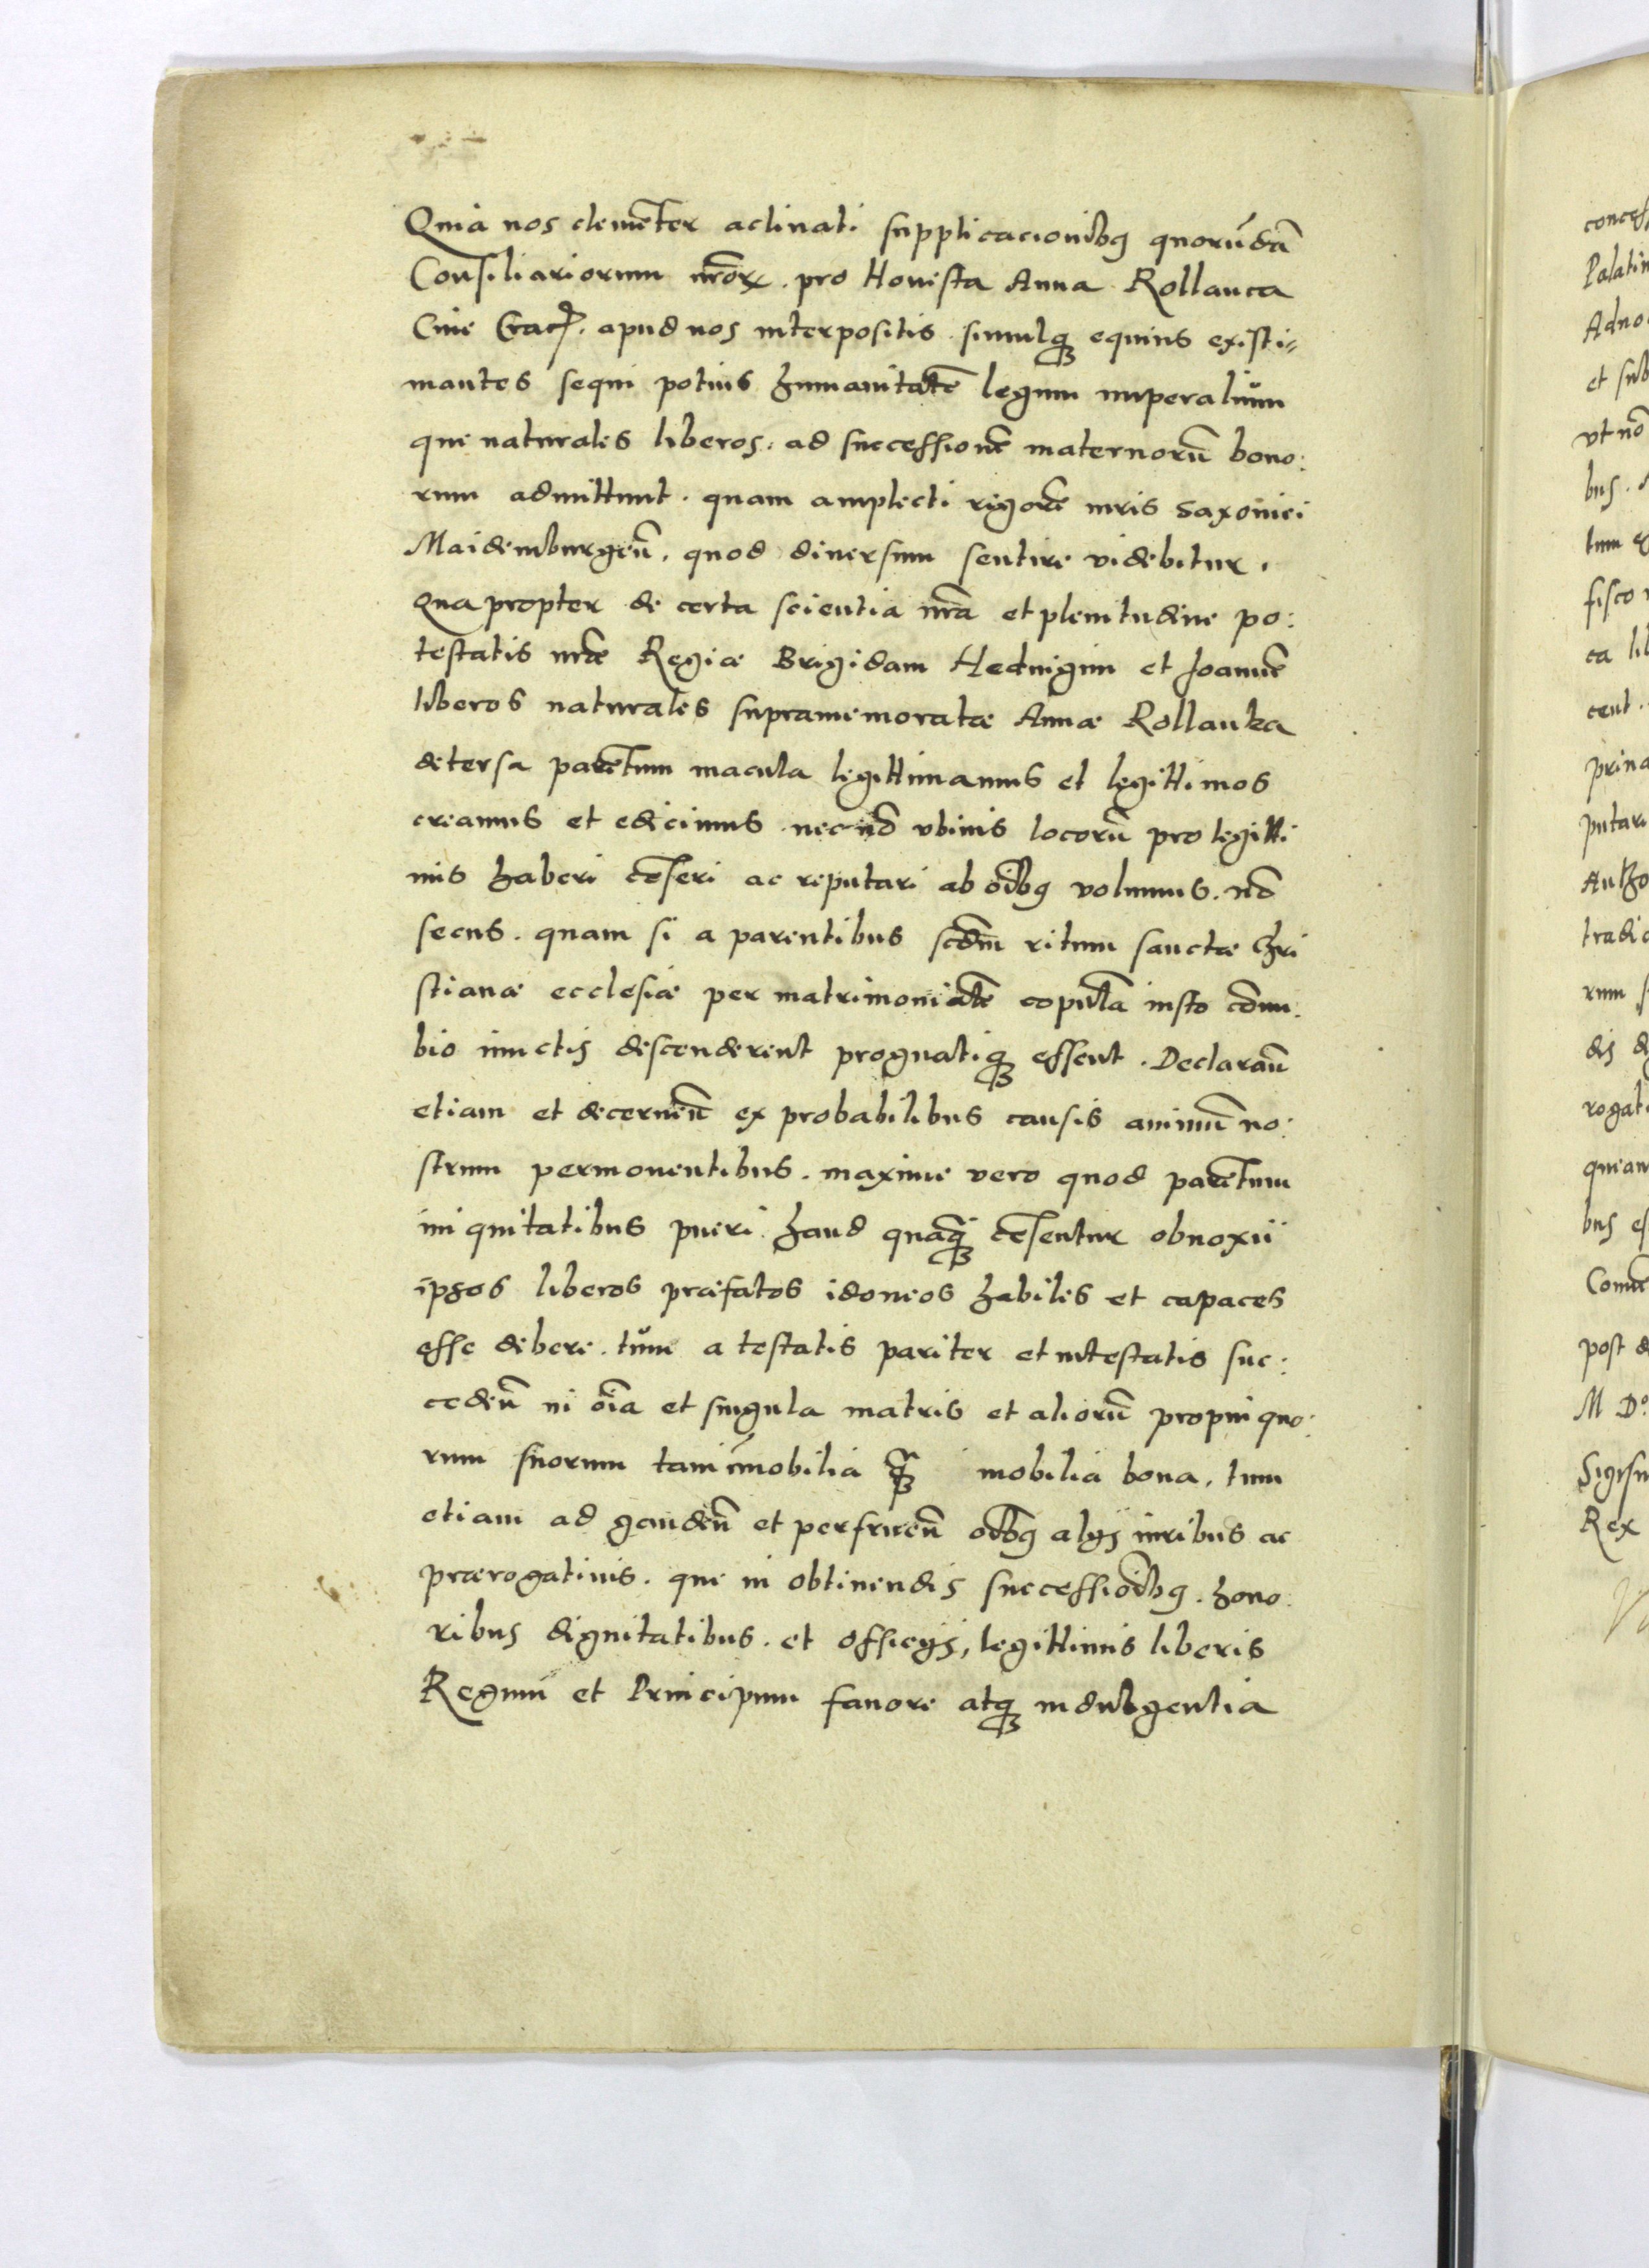 Quia nos clemēter aclinati supplicacionibꝰ quorūdā
Consiliariorum nr̄oꝝ. pro Honesta Anna Rollanca
Ciue Crac̄. apud nos interpositis. simulqꝫ equius existi-
mantes sequi potius humanitatē legum imperalium
que naturales liberos. ad successionē maternorū bono:
rum admittunt. quam amplecti rigorē iuris saxonici
Maidemburgeñ. quod diuersum sentire videbitur.
Qua propter de certa scientia nr̄a et plenitudine po:
testatis nr̄æ Regiæ Brigidam Heduigim et Joannē
liberos naturales supramemoratæ Annæ Rollanka
detersa parētum macula legittimamus et legittimos
creamus et edicimus necnō vbiuis locorū pro legitti
mis haberi cēseri ac reputari ab oībꝰ volumus. nō
secus. quam si a parentibus scdm̄ ritum sanctæ Chri
stianæ ecclesiæ per matrimonialē copulā iusto cōnu:
bio iunctis descenderent prognatiqꝫ essent. Declarañ
etiam et decerneñ ex probabilibus causis animū no:
strum permouentibus. maxime vero quod parētum
iniquitatibus pueri haud quāqꝫ cēsentur obnoxii
ipsos liberos præfatos idoneos habiles et capaces
esse debere. tum a testatis pariter et intestatis suc:
cedeñ in oīa et singula matris et aliorū propinquo:
rum suorum tam im̄obilia qꝫ mobilia bona. tum
etiam ad gaudeñ et perfrueñ oībꝰ alijs iuribus ac
prærogatiuis. que in obtinendis successiōibꝰ. hono:
ribus dignitatibus. et officijs, legittimis liberis
Regum et Principum fauore atqꝫ indulgentia
concess
Palatin
Adno
et sub
vt nō
bus.
tum
fisco
ca lib
cent.
prina
putari
Autho
tradic
rum
dis
rogati
quean
bus es
Comē
post
M D°
Sigism
Rex